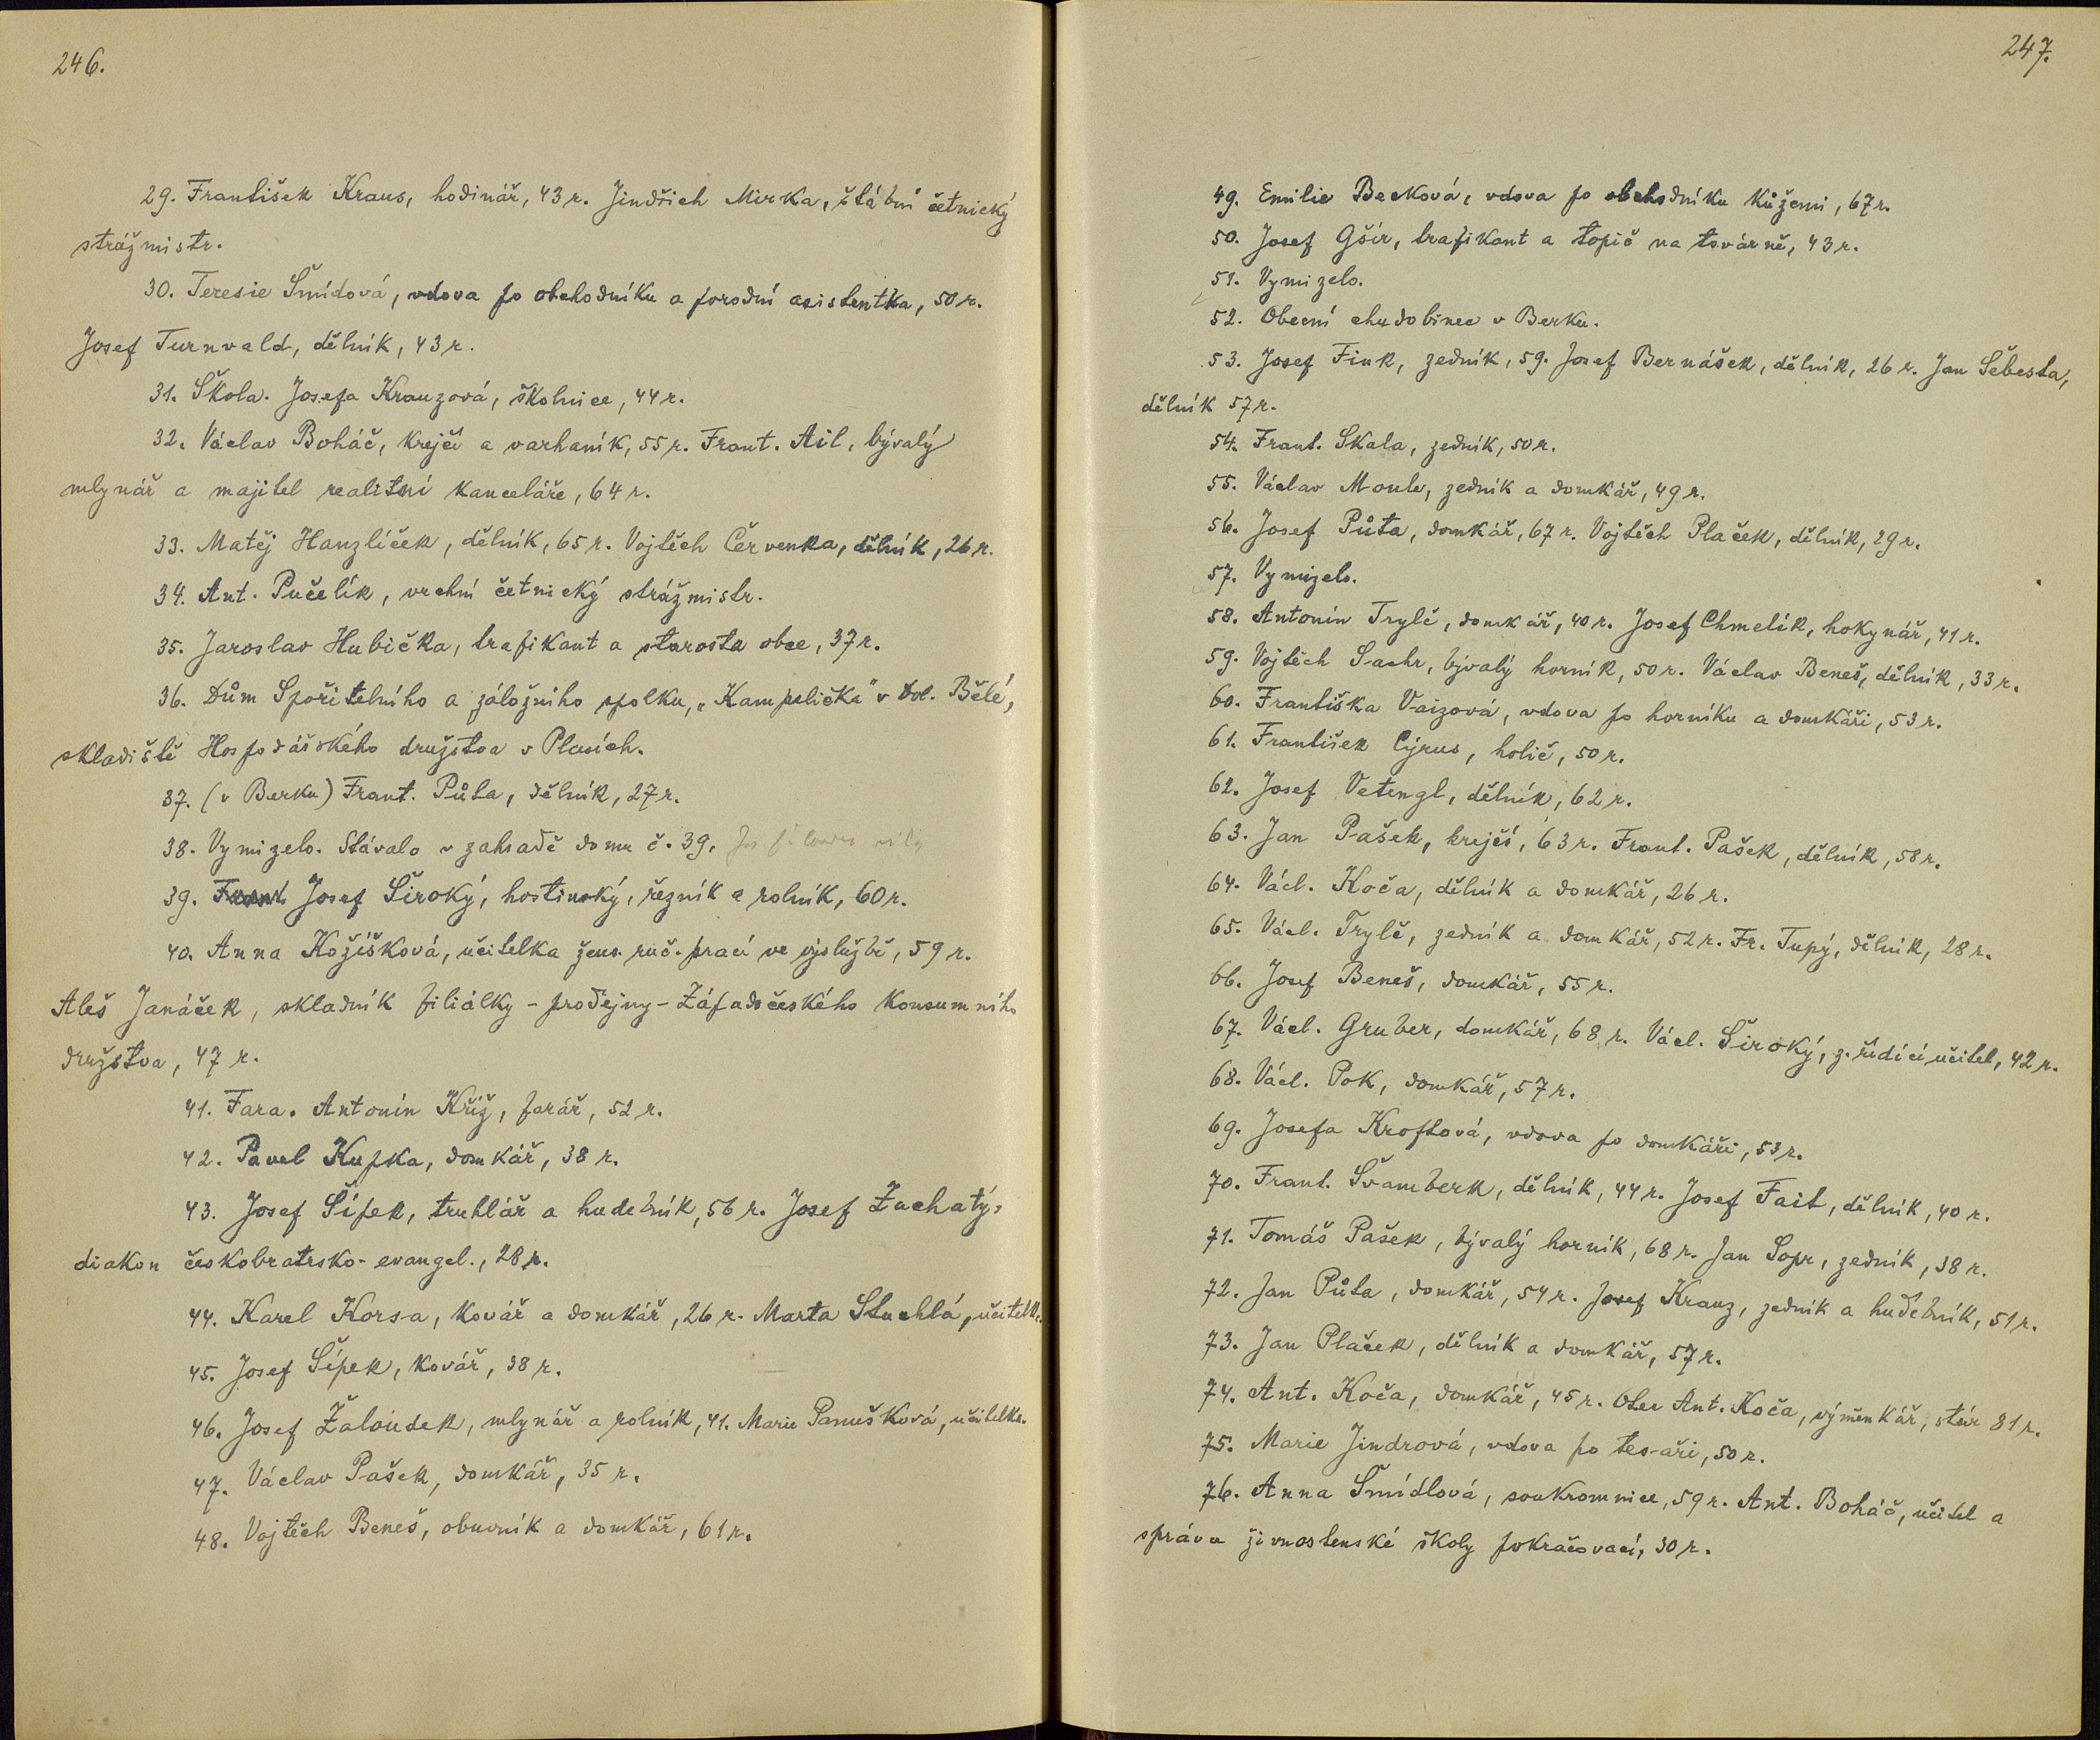 246.
29. František Kraus, hodinář, 43 r. Jindřich Mirka, štábní četnický
strážmistr.
30. Teresie Šmídová, vdova po obchodníku a porodní asistentka, 50 r.
Josef Turnvald, dělník, 43 r.
31. Škola. Josefa Krauzová, školnice, 44 r.
32. Václav Boháč, krejčí a varhaník, 55 r. Frant. Ail, bývalý
mlynář a majitel realitní kanceláře, 64 r.
33. Matěj Hanzlíček, dělník, 65 r. Vojtěch Červenka, dělník, 26 r.
34. Ant. Pučelík, vrchní četnický strážmistr.
35. Jaroslav Hubička, trafikant a starosta obce, 37 r.
36. Dům Spořitelního a záložního spolku, „Kampelička" v Dol. Bělé,
skladiště Hospodářského družstva v Plasích.
37. (v Berku) Frant. Půta, dělník, 27 r.
38. Vymizelo. Stávalo v zahradě domu č. 39.
39. Josef Široký, hostinský, řezník a rolník, 60 r.
40. Anna Kožíšková, učitelka žens. ruč. prací ve výslužbě, 59 r.
Aleš Janáček, skladník filiálky - prodejny - Západočeského Konsumního
družstva, 47 r.
41. Fara. Antonín Kříž, farář, 52 r.
42. Pavel Kupka, domkář, 38 r.
43. Josef Šípek, truhlář a hudebník, 56 r. Josef Zuchatý,
diakon českobratrsko-evangel., 28 r.
44. Karel Korsa, kovář a domkář, 26 r. Marta Stuchlá, učitelk.
45. Josef Šípek, kovář, 38 r.
46. Josef Žaloudek, mlynář a rolník, 41. Marie Panušková, učitelka.
47. Václav Pašek, domkář, 35 r.
48. Vojtěch Beneš, obuvník a domkář, 61 r.
247.
49. Emilie Becková, vdova po obchodníku kůžemi, 67 r.
50. Josef Gšír, trafikant a topič na továrně, 43 r.
51. Vymizelo.
52. Obecní chudobinec v Berku.
53. Josef Fink, zedník, 59. Josef Bernášek, dělník, 26 r. Jan Šebesta,
dělník 57 r.
54. Frant. Skala, zedník, 50 r.
55. Václav Moule, zedník a domkář, 49 r.
56. Josef Půta, domkář, 67 r. Vojtěch Plaček, dělník, 29 r.
57. Vymizelo.
58. Antonín Trylč, domkář, 40 r. Josef Chmelík, hokynář, 41 r.
59. Vojtěch Sachr, bývalý horník, 50 r. Václav Beneš, dělník, 33 r.
60. Františka Vaizová, vdova po horníku a domkáři, 53 r.
61. František Cýrus, holič, 50 r.
62. Josef Vetengl, dělník, 62 r.
63. Jan Pašek, krejčí, 63 r. Frant. Pašek, dělník, 58 r.
64. Václ. Koča, dělník a domkář, 26 r.
65. Václ. Trylč, zedník a domkář, 52 r. Fr. Tupý, dělník, 28 r.
66. Josef Beneš, domkář, 55 r.
67. Václ. Gruber, domkář, 68 r. Václ. Široký, z. řídící učitel, 42 r.
68. Václ. Pok, domkář, 57 r.
69. Josefa Kroftová, vdova po domkáři, 53 r.
70. Frant. Švamberk, dělník, 44 r. Josef Fait, dělník, 40 r.
71. Tomáš Pašek, bývalý horník, 68 r. Jan Sopr, zedník, 38 r.
72. Jan Půta, domkář, 54 r. Josef Krauz, zedník a hudebník, 51 r.
73. Jan Plaček, dělník a domkář, 57 r.
74. Ant. Koča, domkář, 45 r. Otec Ant. Koča, výměnkář, stár 81 r.
75. Marie Jindrová, vdova po tesaři, 50 r.
76. Anna Šmídlová, soukromnice, 59 r. Ant. Boháč, učitel a
správce živnostenské školy pokračovací, 30 r.